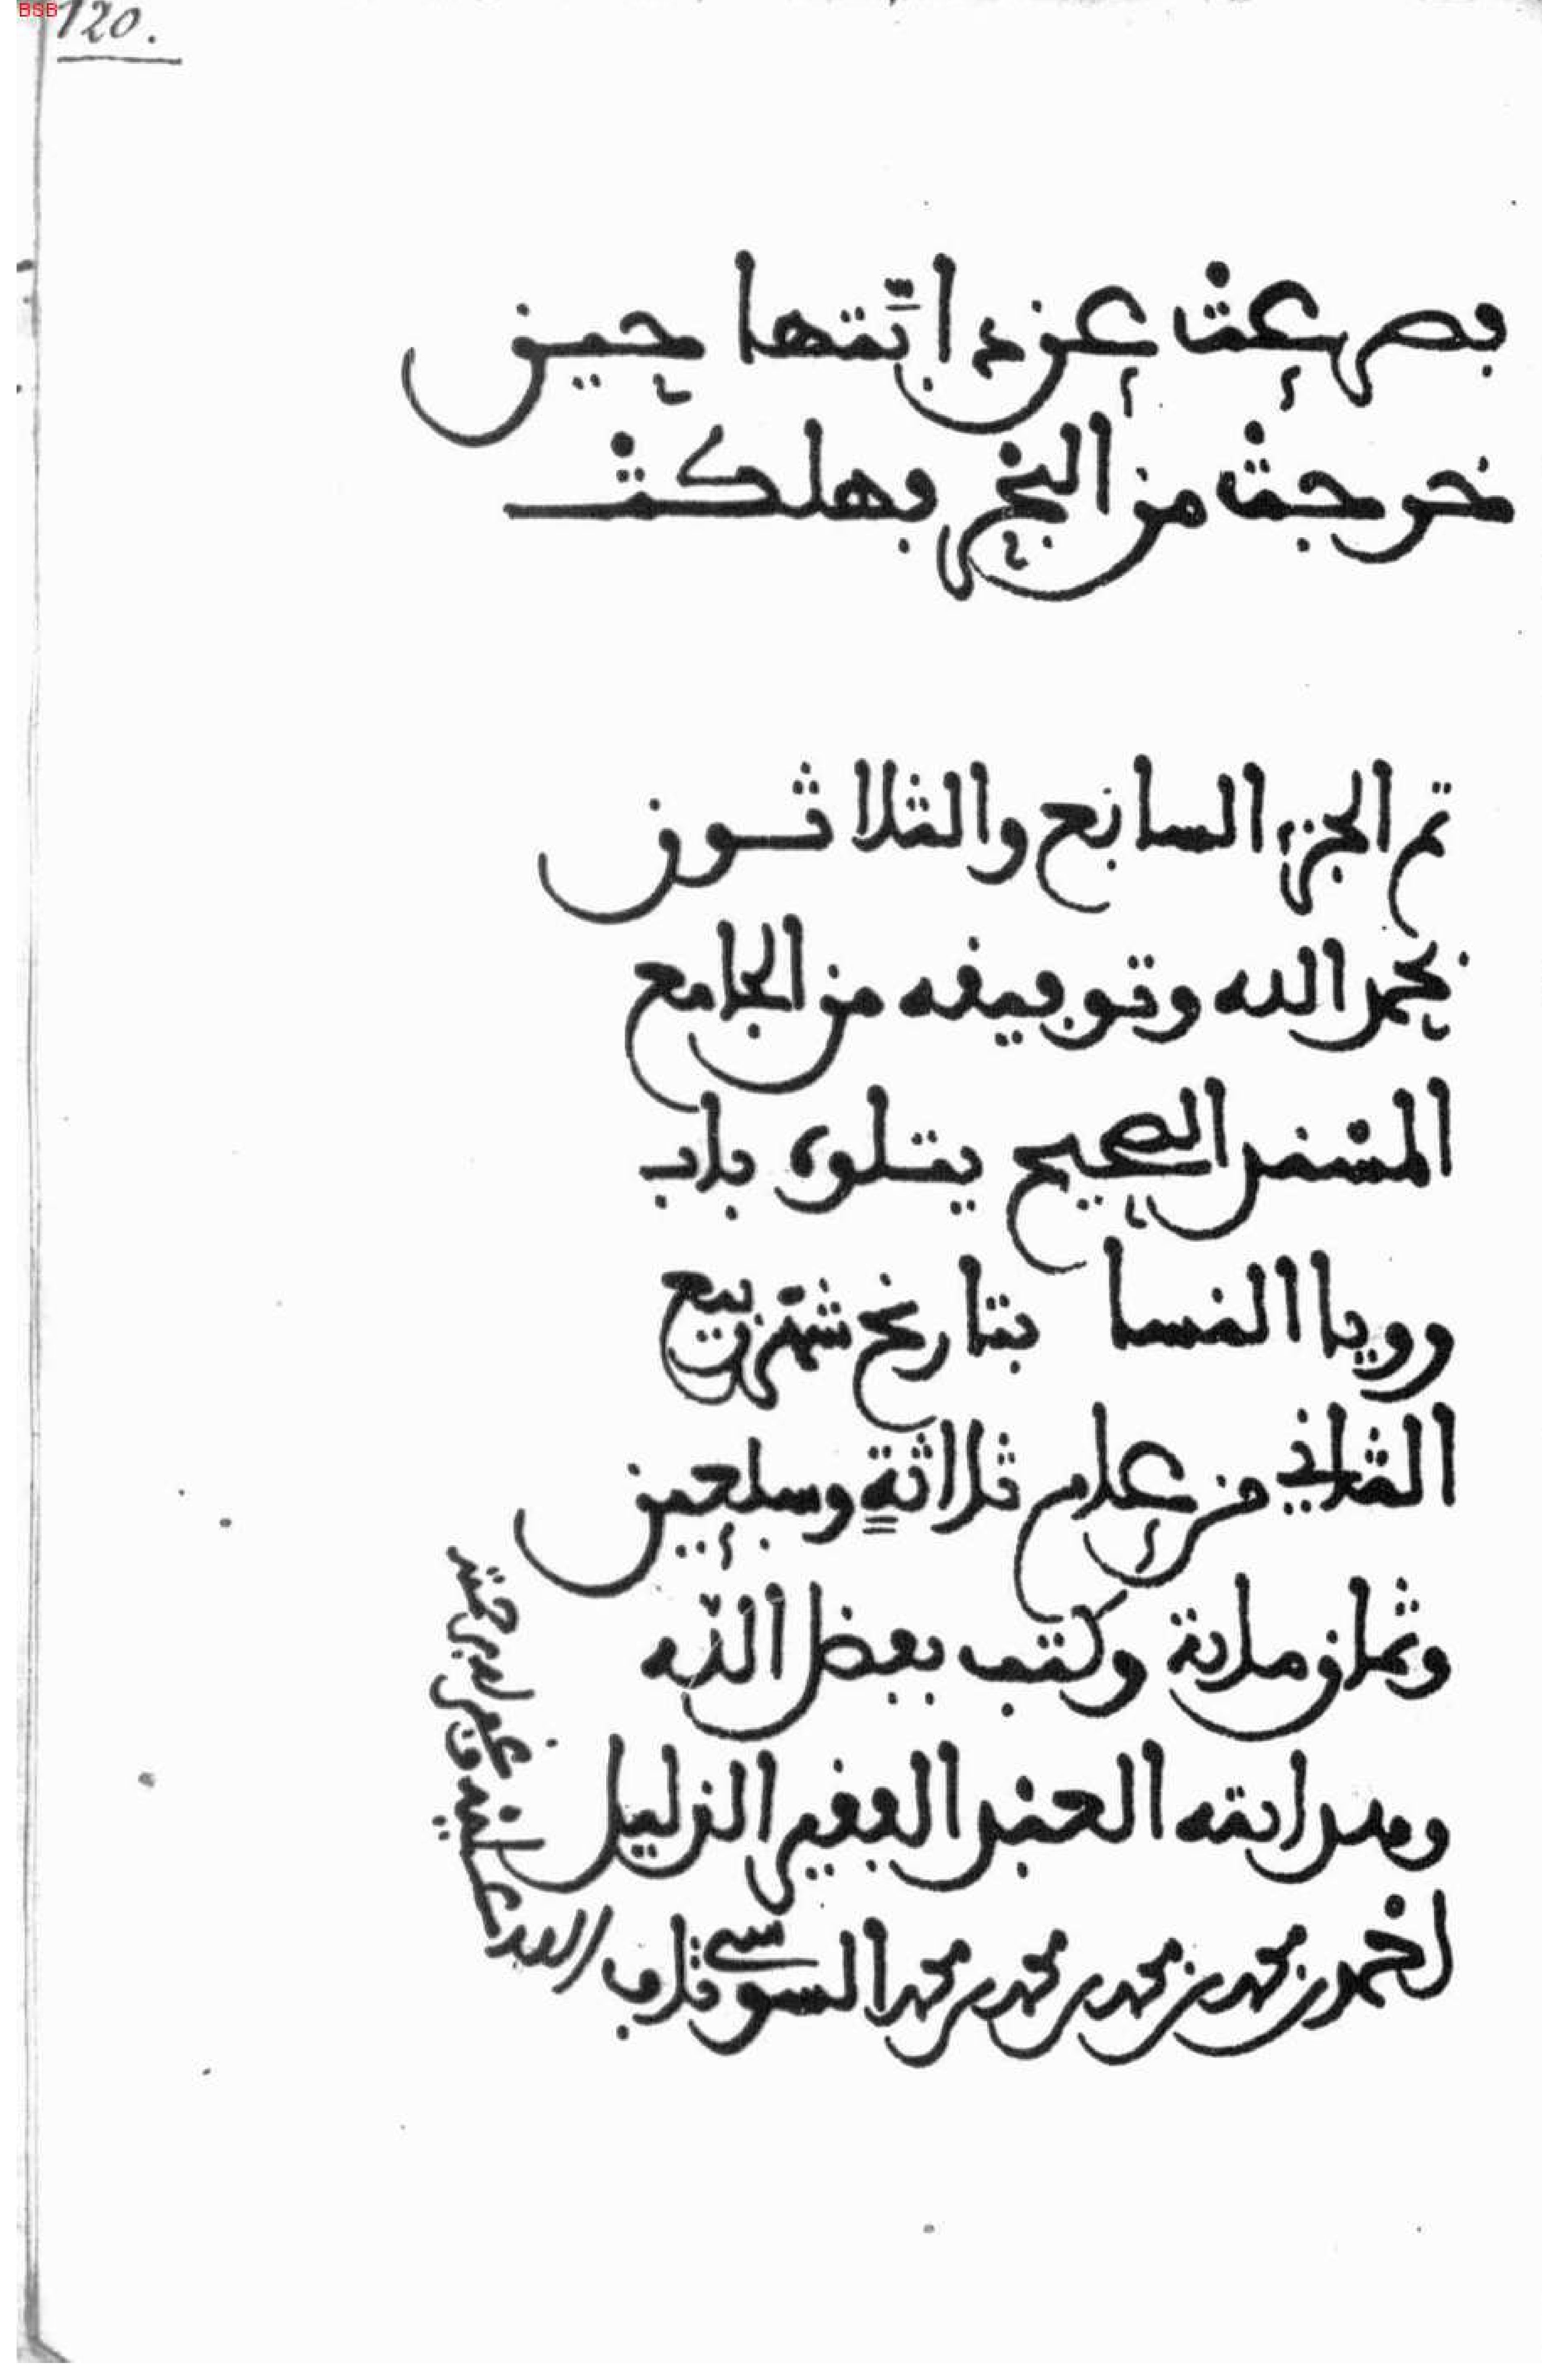 BSB
120.
فصرعت عن دابتها حين
خرجت من البحر فهلكت
تم الجزء السابع والثلاثون
بحمد الله وتوفيقه من الجامع
المسند الصحيح يتلوه باب
رويا النسا بتاريخ شهر ربيع
الثاني من عام ثلاثة وسبعين
وثمان ماية وكتب بفضل الله
وهدايته العبد الفقير الذليل
احمد بن محمد بن محمد بن محمد بن محمد السوسي تاب
الله عليه